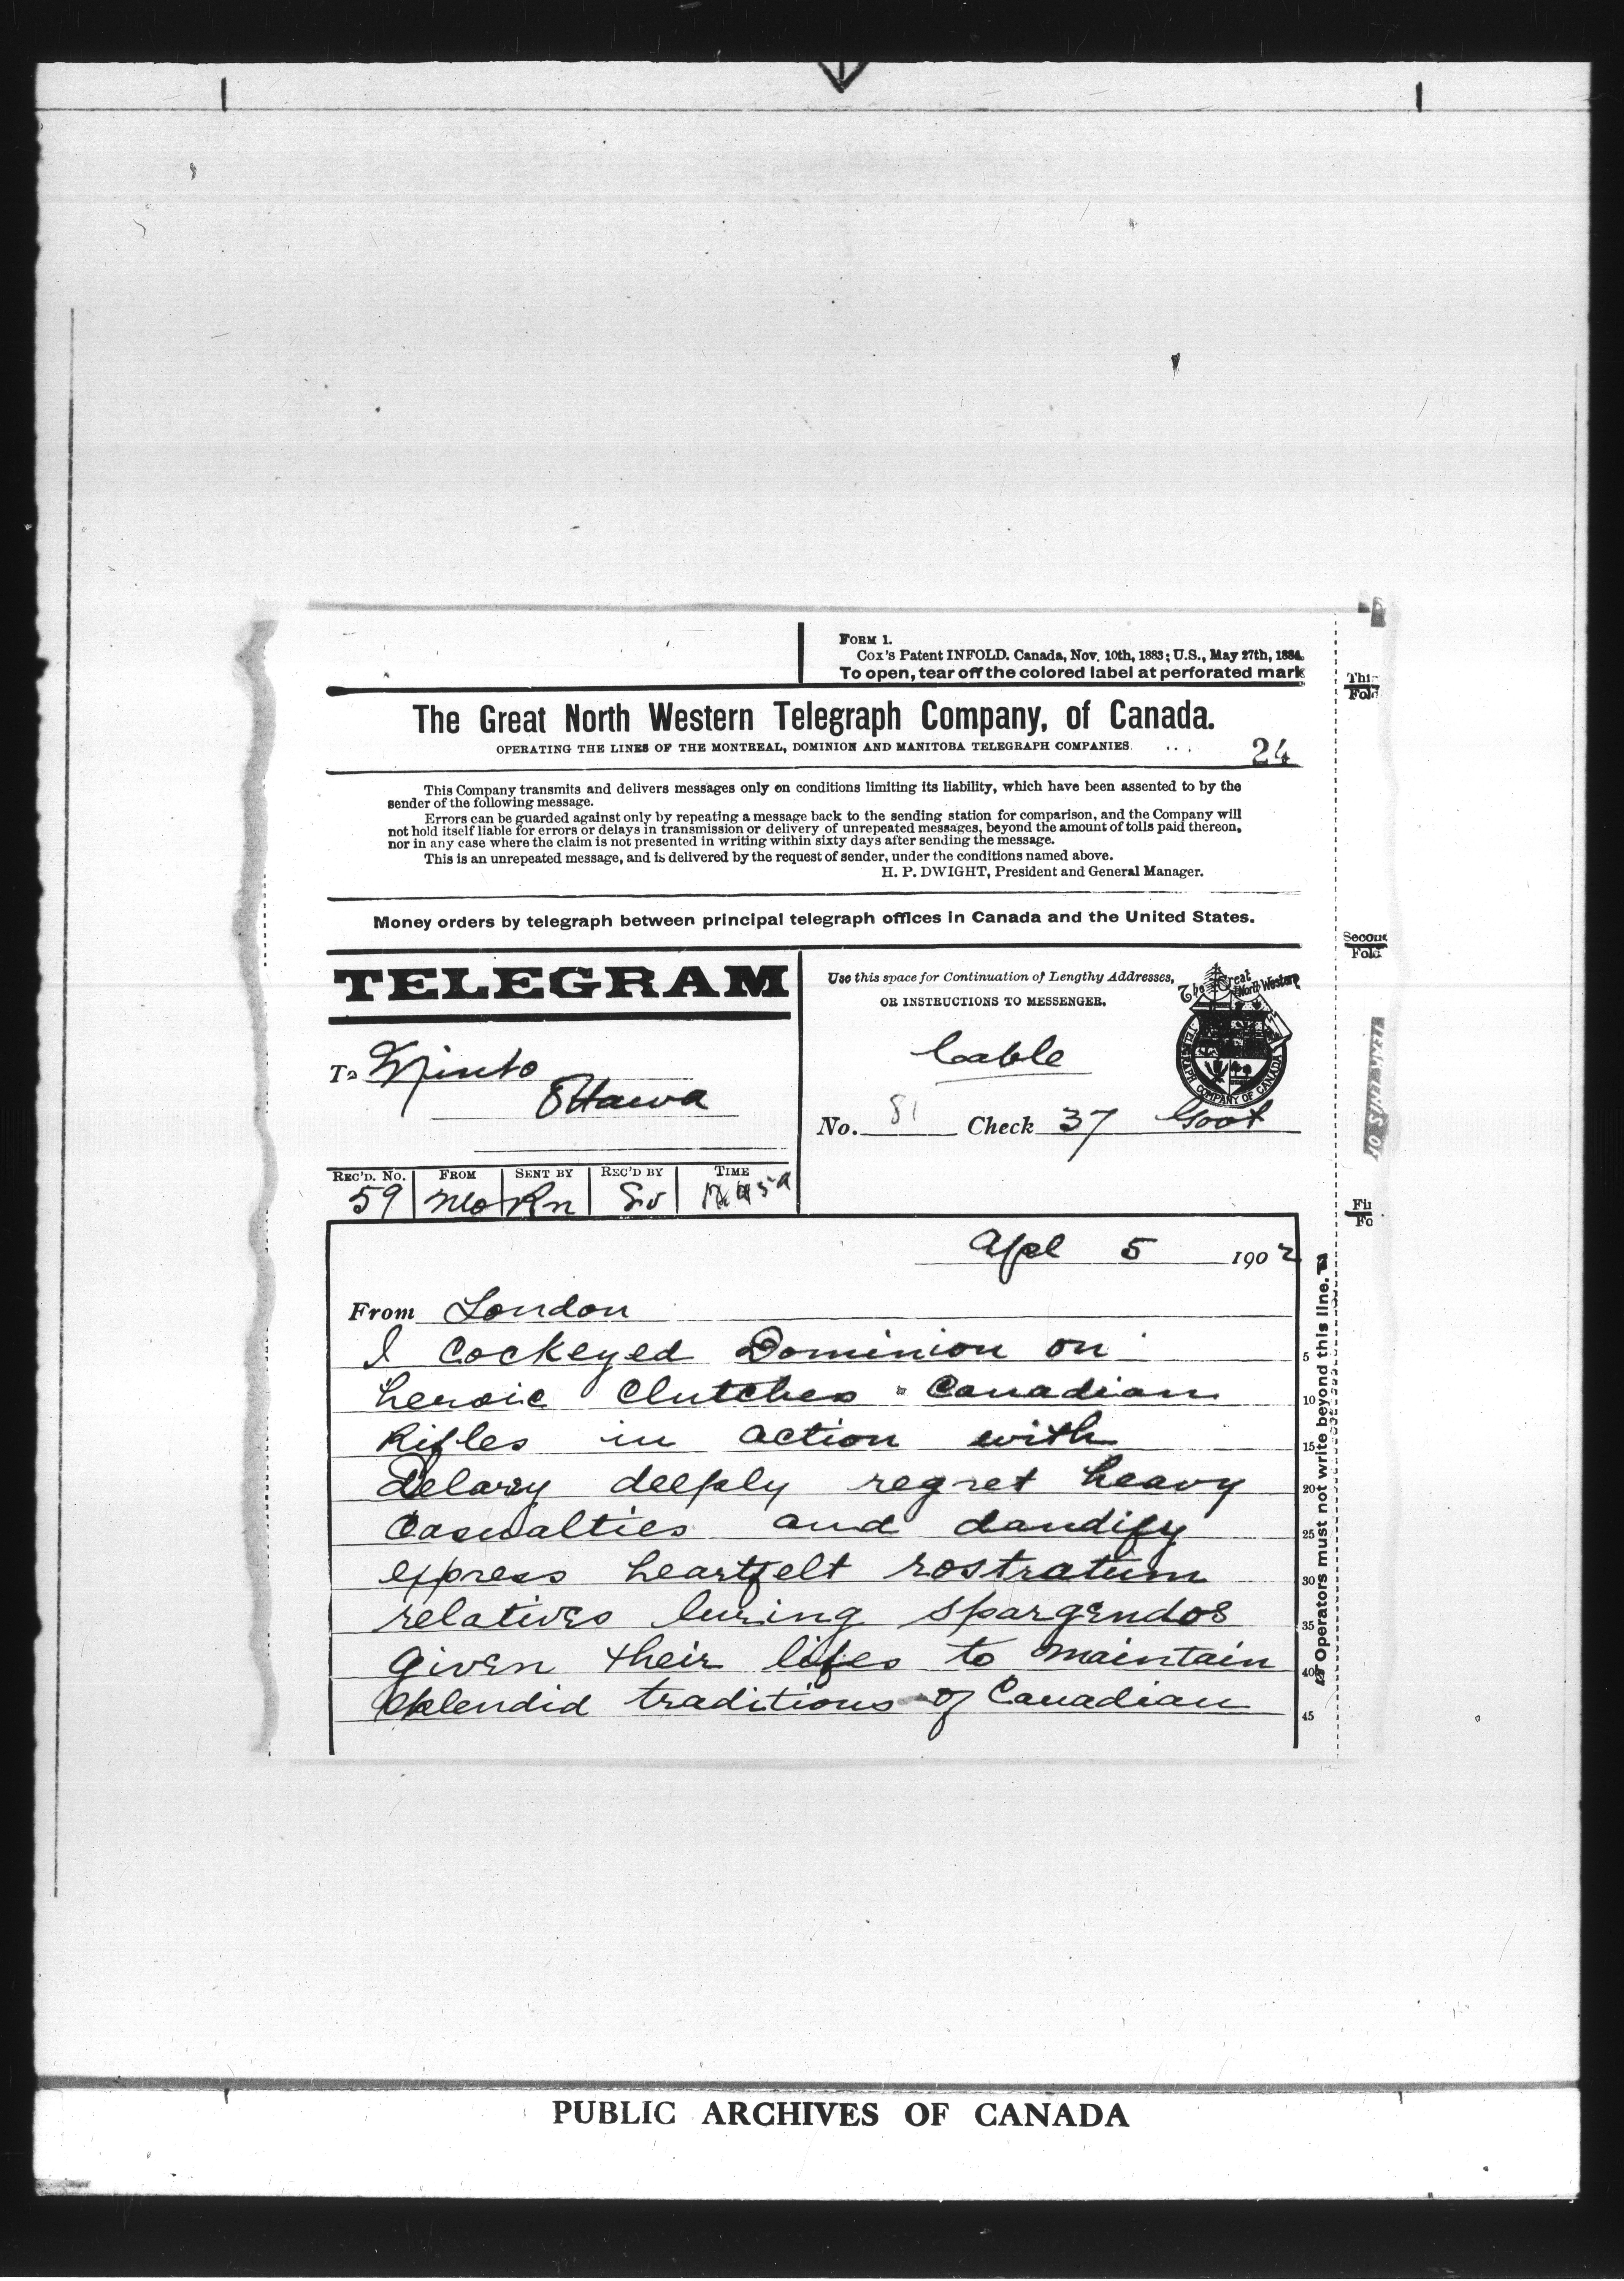 FORM 1.
Cox's Patent INFOLD. Canada, Nov. 10th, 1883; U.S., May 27th, 1884.
To open, tear off the colored label at perforated mark
The Great North Western Telegraph Company, of Canada.
OPERATING THE LINES OF THE MONTREAL, DOMINION AND MANITOBA TELEGRAPH COMPANIES.
24
This Company transmits and delivers messages only on conditions limiting its liability, which have been assented to by the
sender of the following message.
Errors can be guarded against only by repeating a message back to the sending station for comparison, and the Company will
not hold itself liable for errors or delays in transmission or delivery of unrepeated messages, beyond the amount of tolls paid thereon,
nor in any case where the claim is not presented in writing within sixty days after sending the message.
This is an unrepeated message, and is delivered by the request of sender, under the conditions named above.
H. P. DWIGHT, President and General Manager.
Money orders by telegraph between principal telegraph offices in Canada and the United States.
TELEGRAM
To Minto
Ottawa
Use this space for Continuation of Lengthy Addresses,
OR INSTRUCTIONS TO MESSENGER.
The Great North Western
TELEGRAPH COMPANY OF CANADA
Cable
No. 81 Check 37 Govt
REC'D. No. FROM SENT BY REC'D BY TIME
59 Mo Rn
Apl 5 1902
From London
I Cockeyed Dominion on
heroic Clutches Canadian
Rifles in action with
Delarey deeply regret heavy
Casualties and dandify
express heartfelt rostratum
relatives luring spargendos
given their lifes to maintain
splendid traditions of Canadian
5
10
15
20
25
30
35
40
45
Operators must not write beyond this line.
Second
Fold
PUBLIC ARCHIVES OF CANADA